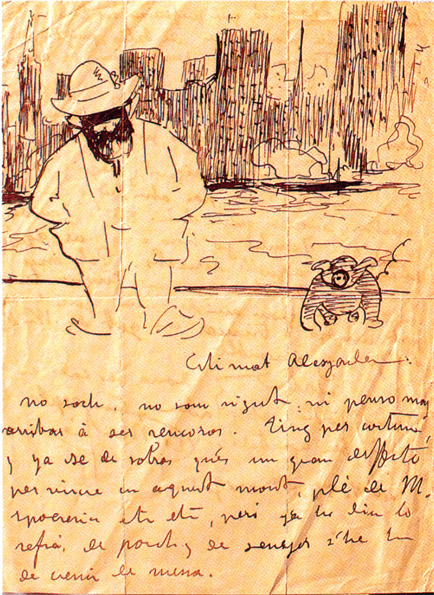 Estimat Alexandre:
no soch, no som sigut, ni penso may
arribar à ser rencoros. Ting per costum,
y ya se de sobras qués un gran deffecte
per viure en aquest mont, plé de
etc etc, pero ja ho diu lo
refrá, de porch y de senyor s'ha de
de venir de mena.